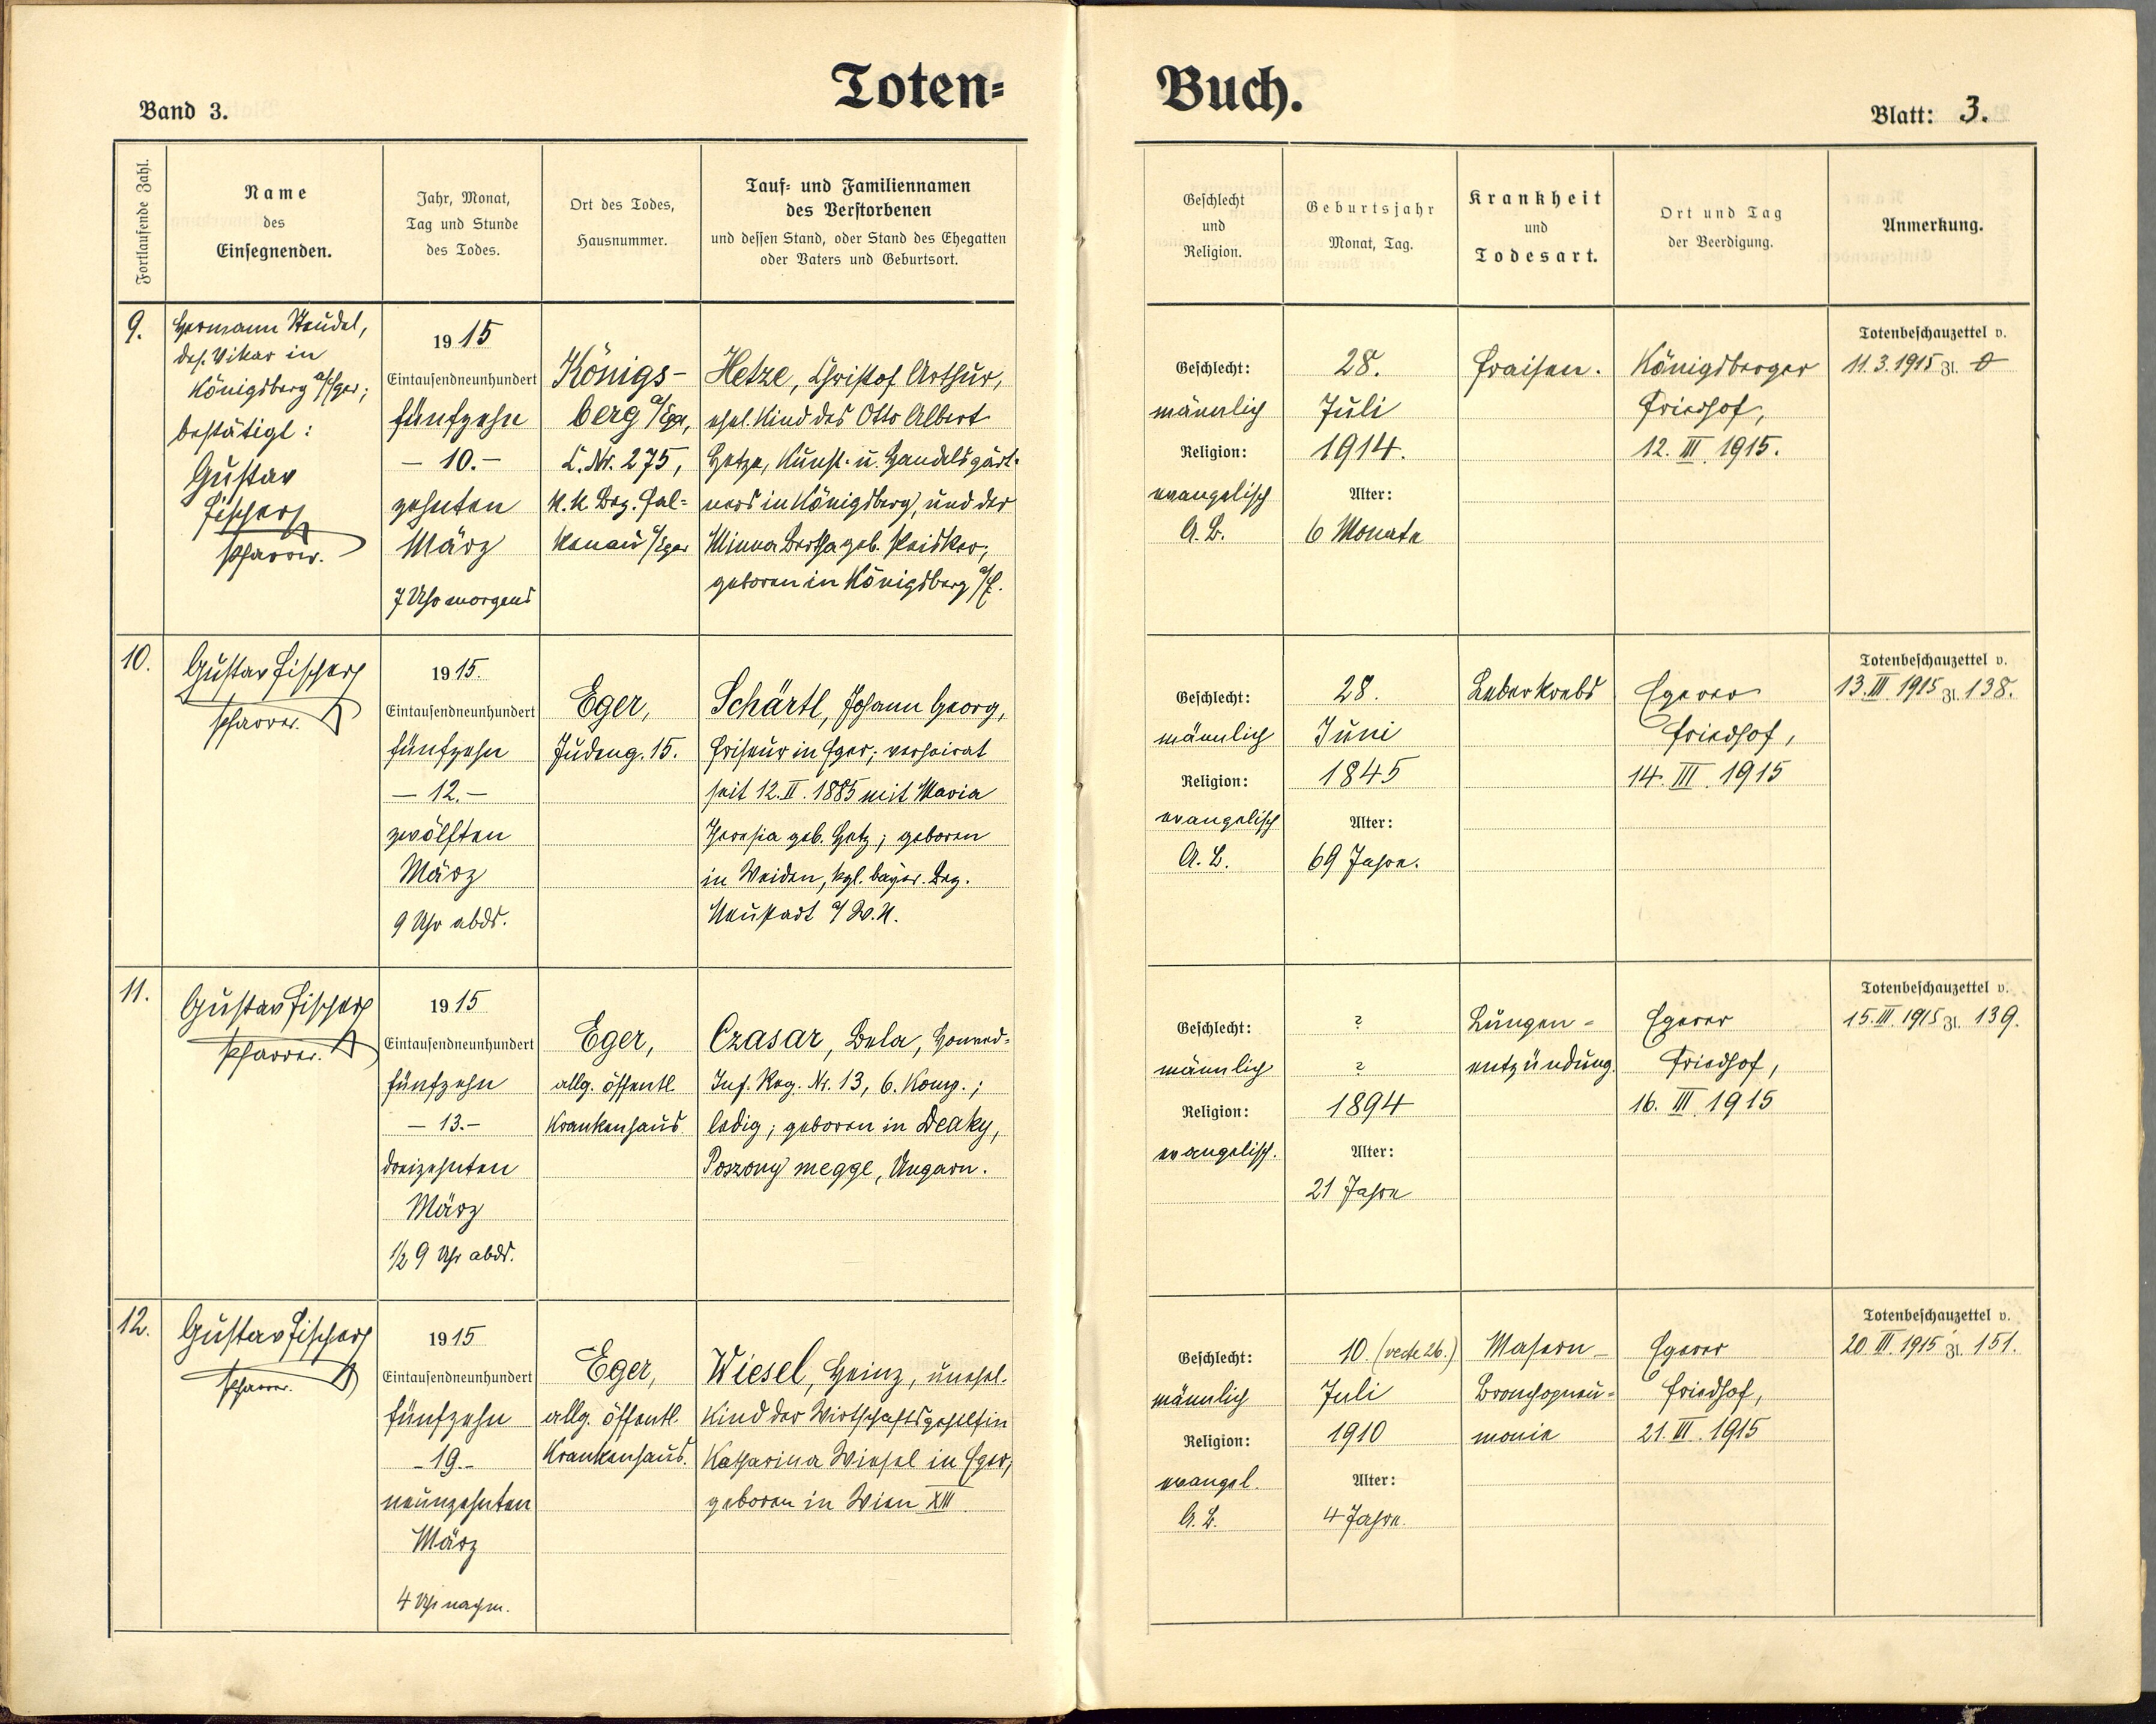 Band 3.
Toten=
Buch.
Blatt: 3.
Fortlaufende Zahl.
Name
des
Einsegnenden.
Jahr, Monat,
Tag und Stunde
des Todes.
Ort des Todes,
Hausnummer.
Tauf= und Familiennamen
des Verstorbenen
und dessen Stand, oder Stand des Ehegatten
oder Vaters und Geburtsort.
Geschlecht
und
Religion.
Geburtsjahr
Monat, Tag.
Krankheit
und
Todesart.
Ort und Tag
der Beerdigung.
Anmerkung.
9.
Hermann
Vikar in
Königsberg a/Eger;
bestätigt:
Gustav
Fischer
Pfarrer.
1915
Eintausendneunhundert
fünfzehn
— 10. —
zehnten
März
7 Uhr morgens
Königs-
berg a/Eger,
C. Nr. 275,
k. k. Bez. Fal=
kenau a/Eger
Hetze, Christof Arthur,
ehel. Kind des Otto Albert
Hetze, Kunst- u. Handelsgärt-
ners in Königsberg, und der
Minna Bertha geb.
geboren in Königsberg a/E.
Geschlecht:
männlich
Religion:
evangelisch
A. B.
28.
Juli
1914.
Alter:
6 Monate
Fraisen.
Königsberger
Friedhof,
12. III. 1915.
Totenbeschauzettel v.
11. 3. 1915 Zl. 0
10.
Gustav Fischer
Pfarrer.
1915.
Eintausendneunhundert
fünfzehn
— 12. —
zwölften
März
9 Uhr abds.
Eger,
Judeng. 15.
Schärtl, Johann Georg,
Friseur in Eger; verheirat
seit 12. II. 1885 mit Maria
Theresia geb. Hetz; geboren
in Weiden, kgl. bayer. Bez.
Neustadt a/W. N.
Geschlecht:
männlich
Religion:
evangelisch
A. B.
28.
Juni
1845
Alter:
69 Jahre.
Leberkrebs
Egerer
Friedhof,
14. III. 1915
Totenbeschauzettel v.
13. III. 1915 Zl. 138.
11.
Gustav Fischer
Pfarrer.
1915
Eintausendneunhundert
fünfzehn
— 13. —
dreizehnten
März
1/2 9 Uhr abds.
Eger,
allg. öffentl.
Krankenhaus.
Czasar, Bela, Honved-
Inf. Reg. Nr. 13, 6. Komp.;
ledig; geboren in Deaky,
Poszony megge, Ungarn.
Geschlecht:
männlich
Religion:
evangelisch.
?
?
1894
Alter:
21 Jahre
Lungen-
entzündung.
Egerer
Friedhof,
16. III. 1915
Totenbeschauzettel v.
15. III. 1915 Zl. 139.
12.
Gustav Fischer
Pfarrer.
1915
Eintausendneunhundert
fünfzehn
- 19. -
neunzehnten
März
4 Uhr nachm.
Eger,
allg. öffentl.
Krankenhaus.
Wiesel, Heinz, unehel.
Kind der Wirtschaftsgehilfin
Katharina Wiesel in Eger,
geboren in Wien XIII.
Geschlecht:
männlich
Religion:
evangel.
A. B.
10. (recte 26.)
Juli
1910
Alter:
4 Jahre.
Masern-
Bronchopneu-
monie
Egerer
Friedhof,
21. III. 1915
Totenbeschauzettel v.
20. III. 1915 Zl. 151.